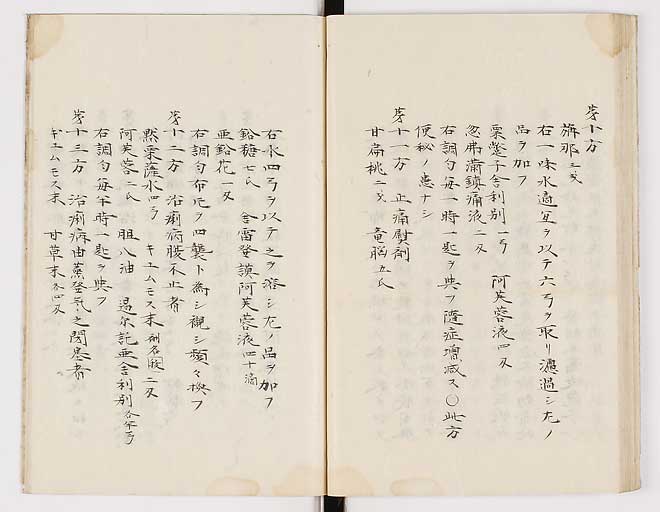 第十方
右一味水適宜ヲ以テ六弓ヲ取リ濾過シ左ノ
品ヲ加フ
罌粟子舎利別一弓 阿芙蓉液四
忽弗満鎮痛液二
右調匀毎一時一匙ヲ與フ随症増減ス〇此方
便秘ノ患ナシ
第十一方 止痛熨剤
甘扁桃二 竜脳五
右水四弓ヲ以テ之ヲ溶シ左ノ品ヲ加フ
鉛糖七 舎雷登謨阿芙蓉液四十滴
亜鉛花一
右調匀布片ヲ四襲ト為シ襯シ頻々換フ
第十二方 治痢病腹不止者
黙栗薩水四弓 キュムモス末 二
阿芙蓉二 胆八油 舎利別各半弓
右調匀毎半時一匙ヲ與フ
第十三方 治痢病由蒸発気之閉塞者
キュムモス末 甘草末各四